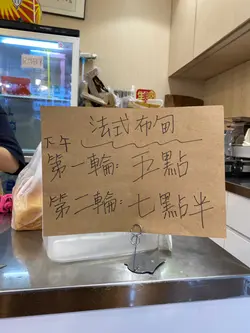 法式布甸
下午
第一輪：五點
第二輪：七點半